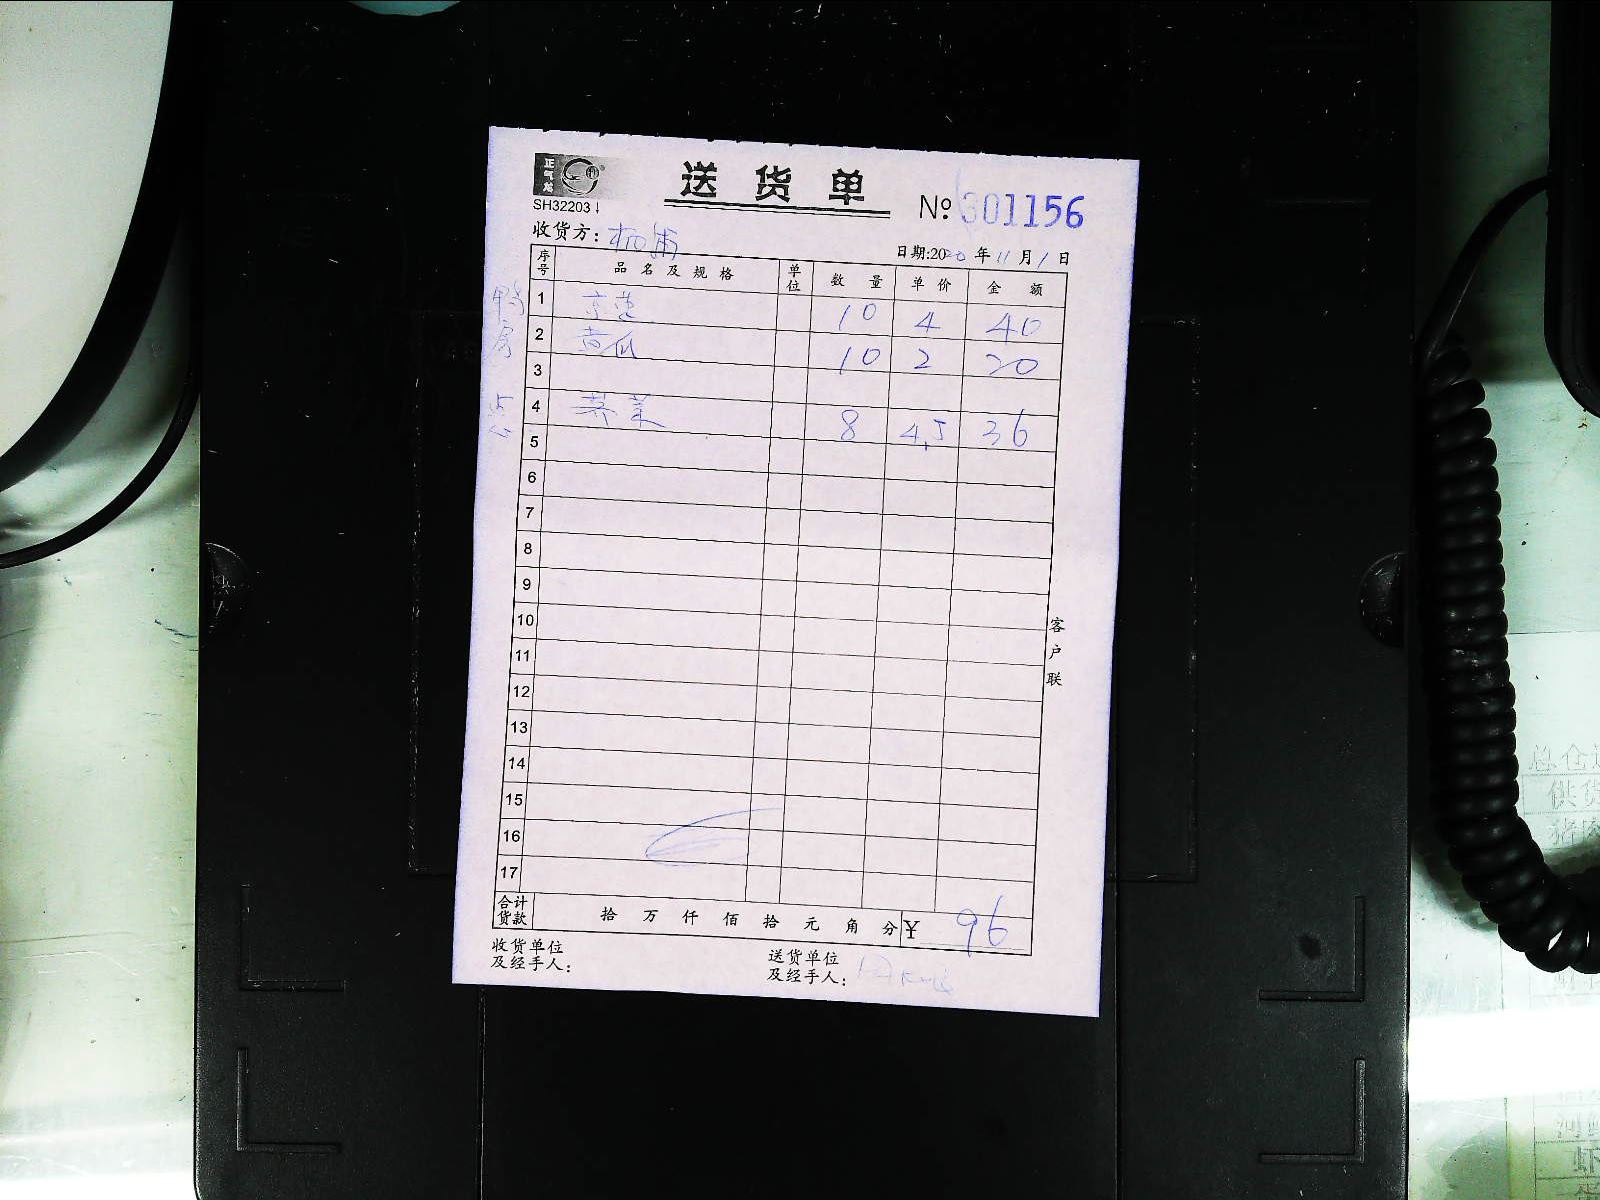 正气炮
送货单
SH32203
№ 301156
收货方：
日期:2020年11月1日
序号 品名及规格 单位 数量 单价 金额
鸭房
1 京葱 10 4 40
2 黄瓜 10 2 20
3
点心
4 荠菜 8 4.5 36
5
6
7
8
9
10
11
12
13
14
15
16
17
客户联
合计货款 拾 万 仟 佰 拾 元 角 分 ¥ 96
收货单位及经手人：
送货单位及经手人：
总仓
供货